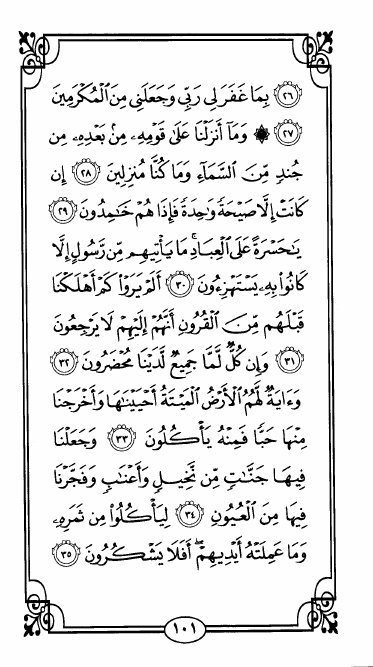 ﴿٢٦﴾ بِمَا غَفَرَ لِي رَبِّي وَجَعَلَنِي مِنَ ٱلْمُكْرَمِينَ
﴿٢٧﴾ ۞ وَمَآ أَنزَلْنَا عَلَىٰ قَوْمِهِۦ مِنۢ بَعْدِهِۦ مِن
جُندٍ مِّنَ ٱلسَّمَآءِ وَمَا كُنَّا مُنزِلِينَ ﴿٢٨﴾ إِن
كَانَتْ إِلَّا صَيْحَةً وَٰحِدَةً فَإِذَا هُمْ خَٰمِدُونَ ﴿٢٩﴾
يَٰحَسْرَةً عَلَى ٱلْعِبَادِ ۚ مَا يَأْتِيهِم مِّن رَّسُولٍ إِلَّا
كَانُوا۟ بِهِۦ يَسْتَهْزِءُونَ ﴿٣٠﴾ أَلَمْ يَرَوْا۟ كَمْ أَهْلَكْنَا
قَبْلَهُم مِّنَ ٱلْقُرُونِ أَنَّهُمْ إِلَيْهِمْ لَا يَرْجِعُونَ
﴿٣١﴾ وَإِن كُلٌّ لَّمَّا جَمِيعٌ لَّدَيْنَا مُحْضَرُونَ ﴿٣٢﴾
وَءَايَةٌ لَّهُمُ ٱلْأَرْضُ ٱلْمَيْتَةُ أَحْيَيْنَٰهَا وَأَخْرَجْنَا
مِنْهَا حَبًّا فَمِنْهُ يَأْكُلُونَ ﴿٣٣﴾ وَجَعَلْنَا
فِيهَا جَنَّٰتٍ مِّن نَّخِيلٍ وَأَعْنَٰبٍ وَفَجَّرْنَا
فِيهَا مِنَ ٱلْعُيُونِ ﴿٣٤﴾ لِيَأْكُلُوا۟ مِن ثَمَرِهِۦ
وَمَا عَمِلَتْهُ أَيْدِيهِمْ ۖ أَفَلَا يَشْكُرُونَ ﴿٣٥﴾
١٠١